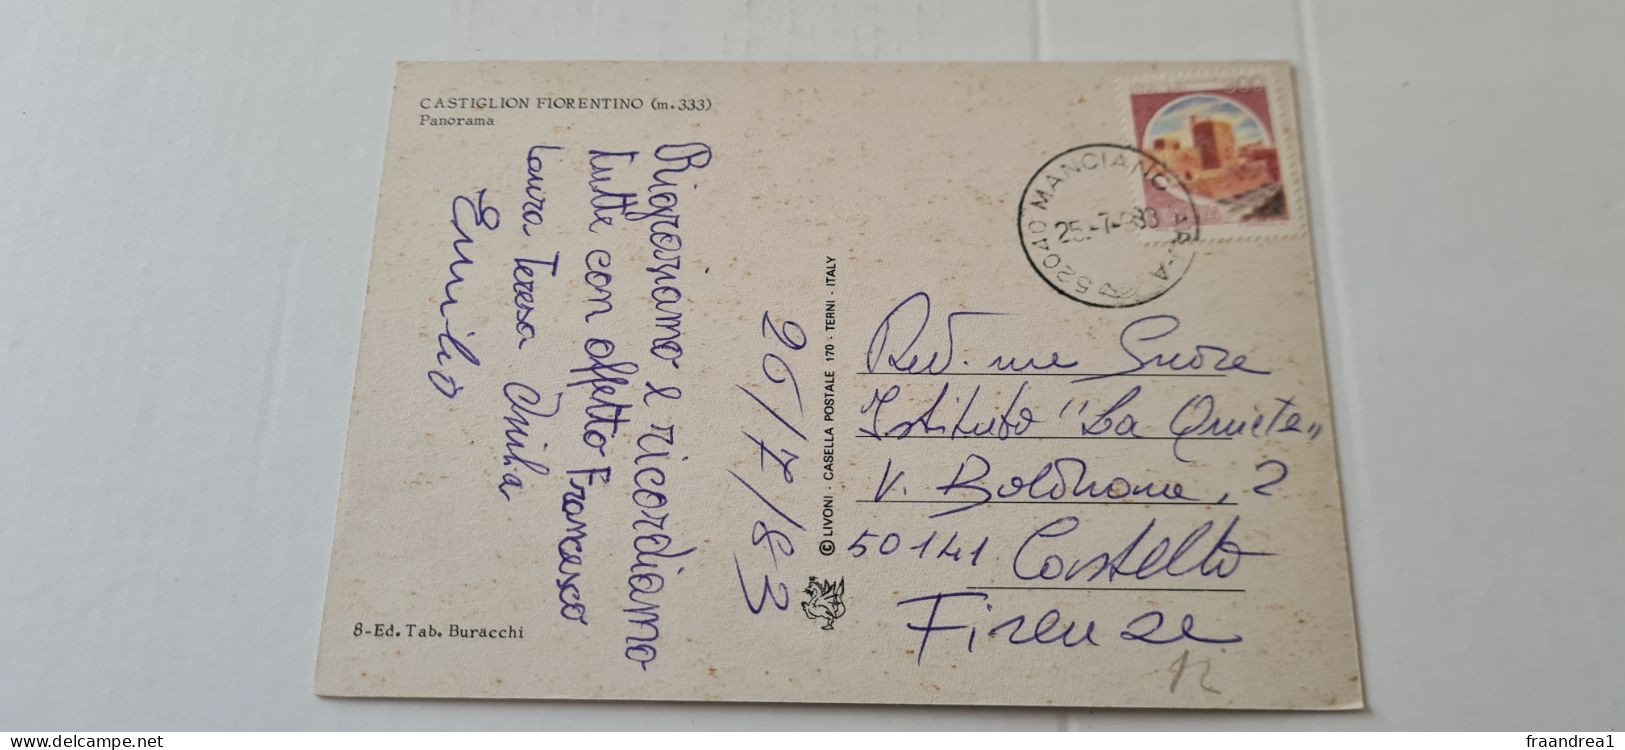 CASTIGLION FIORENTINO (m.333)
Panorama
Ringraziamo e ricordiamo
tutte con affetto Francesco
Laura Teresa Giulia
Emilio
26/7/83
8-Ed. Tab. Buracchi
© LIVONI - CASELLA POSTALE 170 - TERNI - ITALY
52040 MANCIANO
25-7-983
Rev. me Suore
Istituto "La Quiete"
V. Boldrone, 2
50141 Castello
Firenze
12
www.delcampe.net
fraandrea1